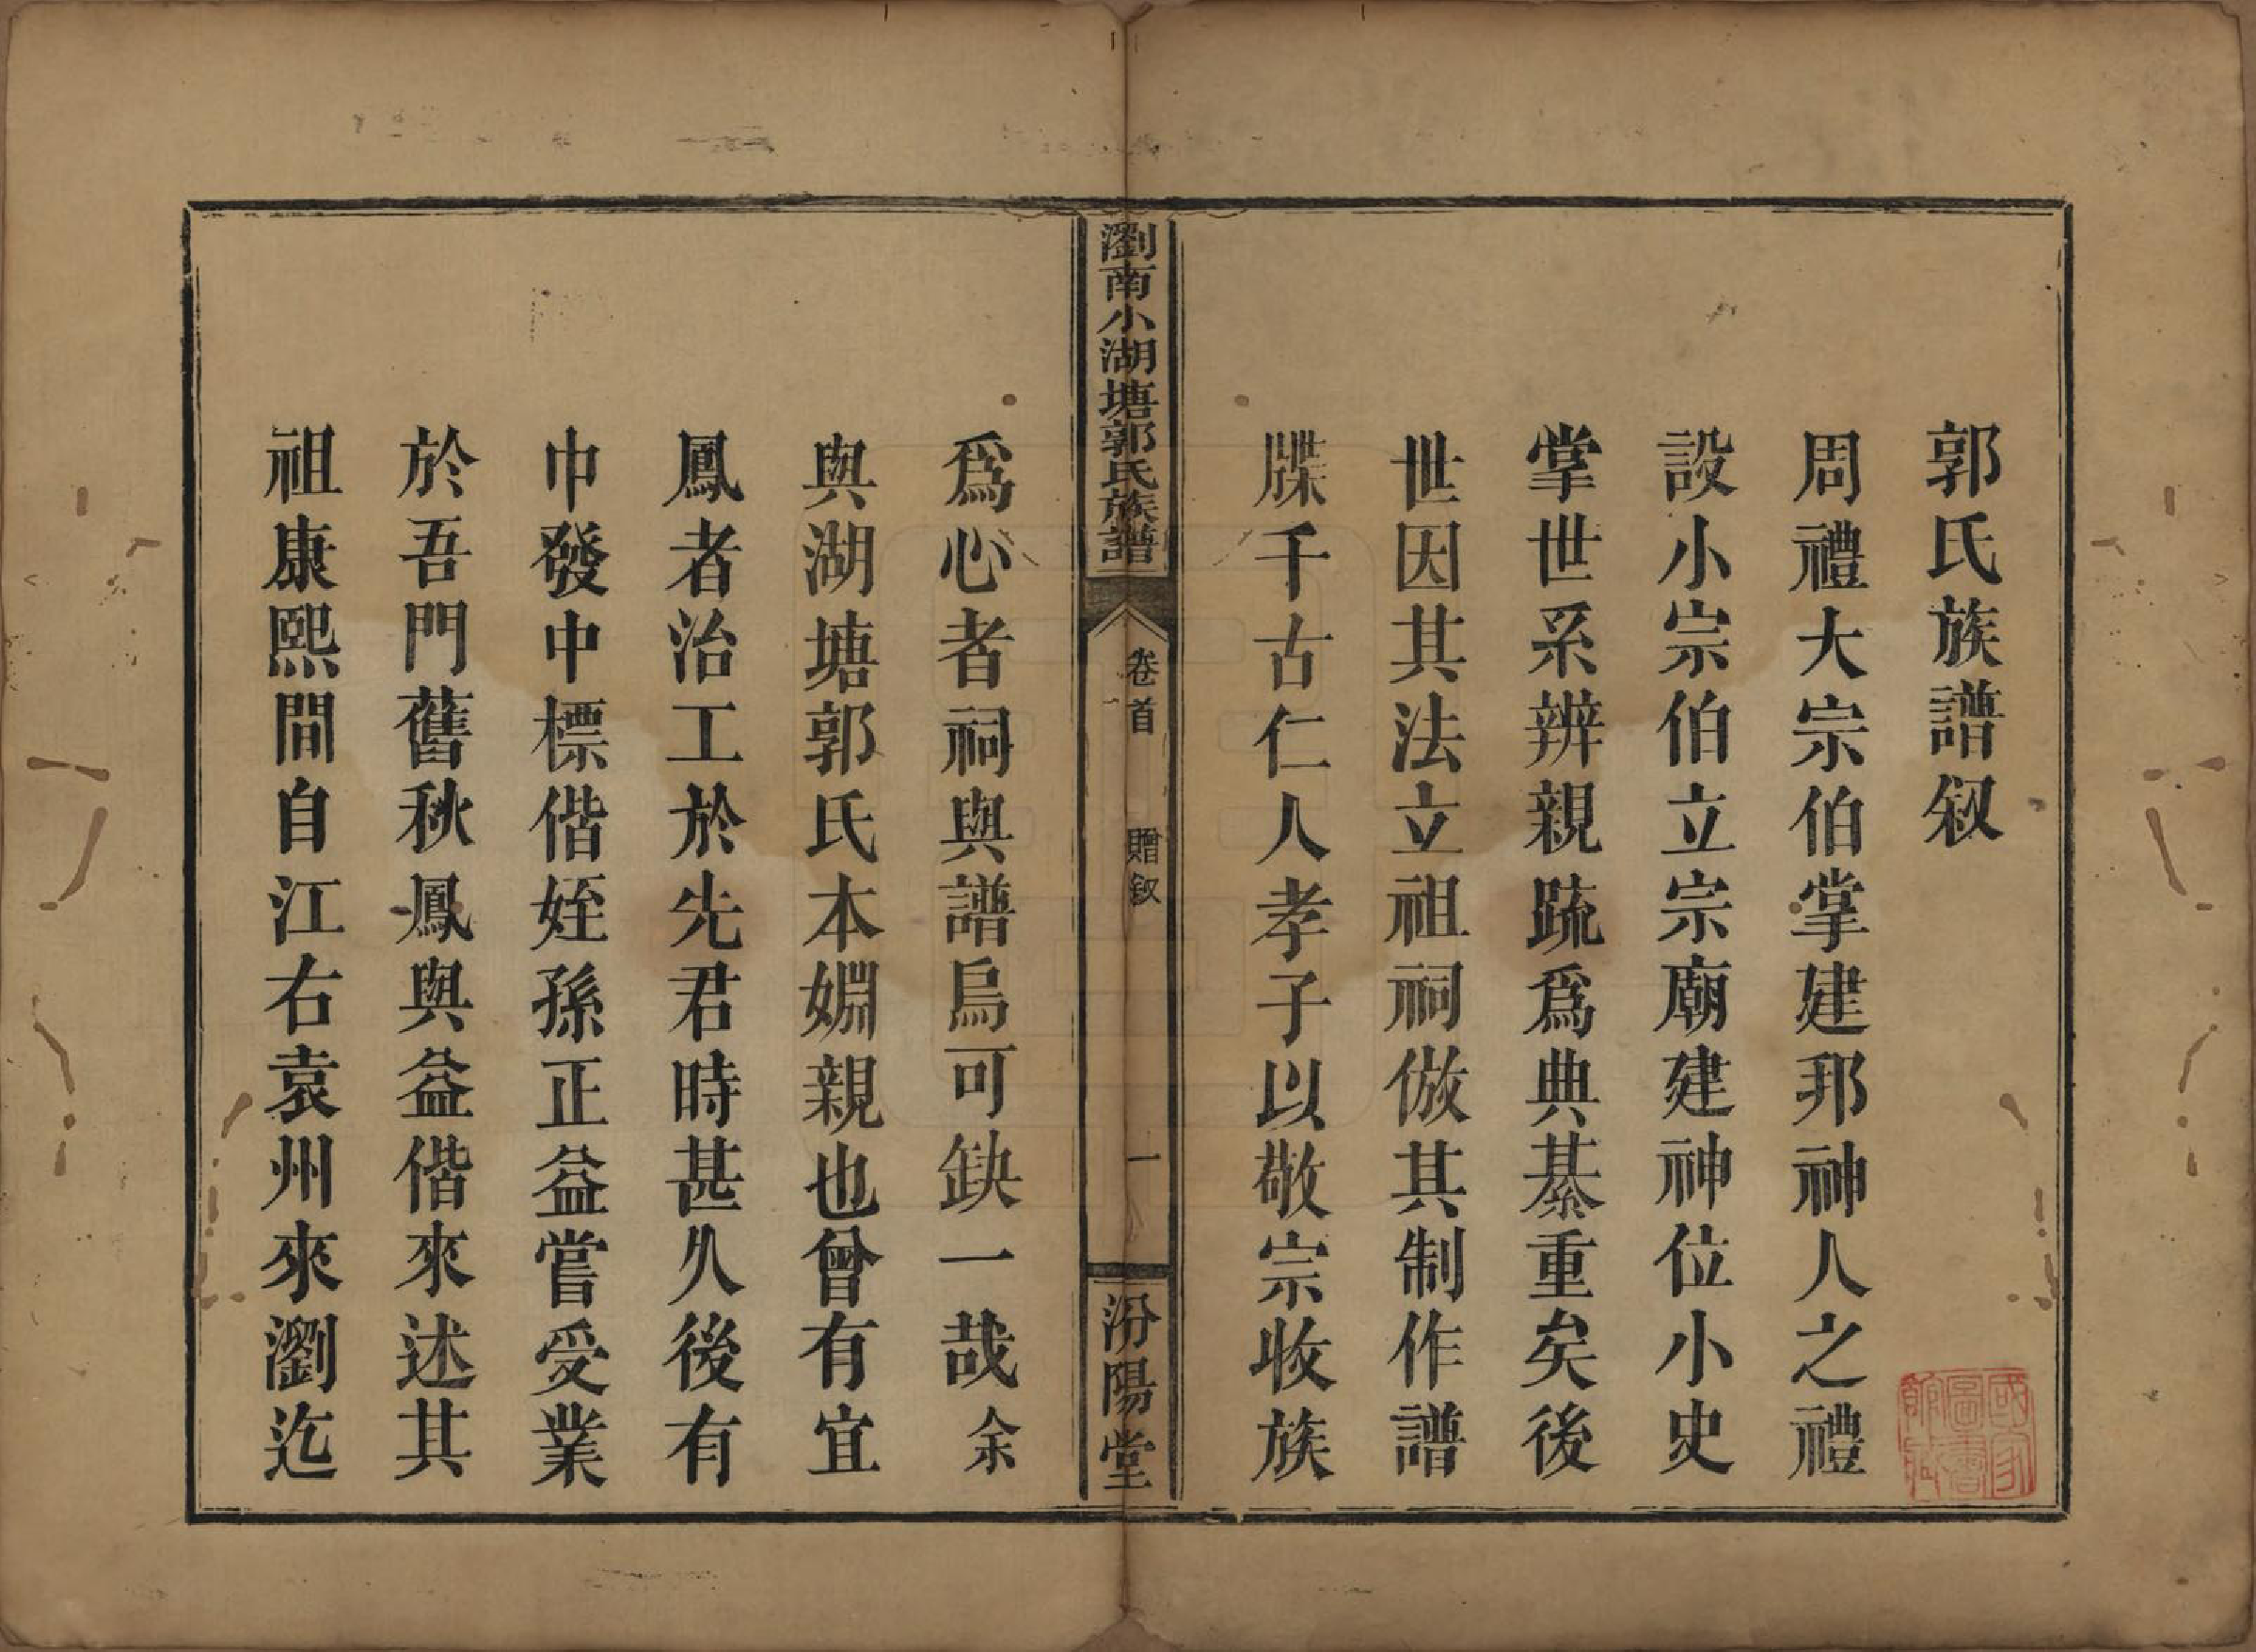 郭氏族譜叙
周禮大宗伯掌建邦神人之禮
設小宗伯立宗廟建神位小史
掌世系辨親疏爲典綦重矣後
世因其法立祖祠倣其制作譜
牒千古仁人孝子以敬宗收族
瀏南小湖塘郭氏族譜
卷首
贈叙
一
汾陽堂
爲心者祠與譜烏可缺一哉余
與湖塘郭氏本婣親也曾有宜
鳳者治工於先君時甚久後有
巾發中標偕姪孫正益嘗受業
於吾門舊秋鳳與益偕來述其
祖康熙間自江右袁州來瀏迄
國家圖書館藏